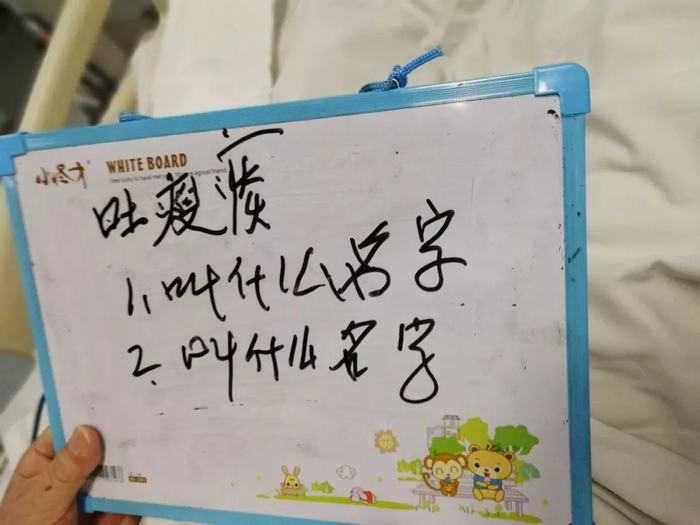 WHITE BOARD
吐瘦痰
1.叫什么名字
2.叫什么名字